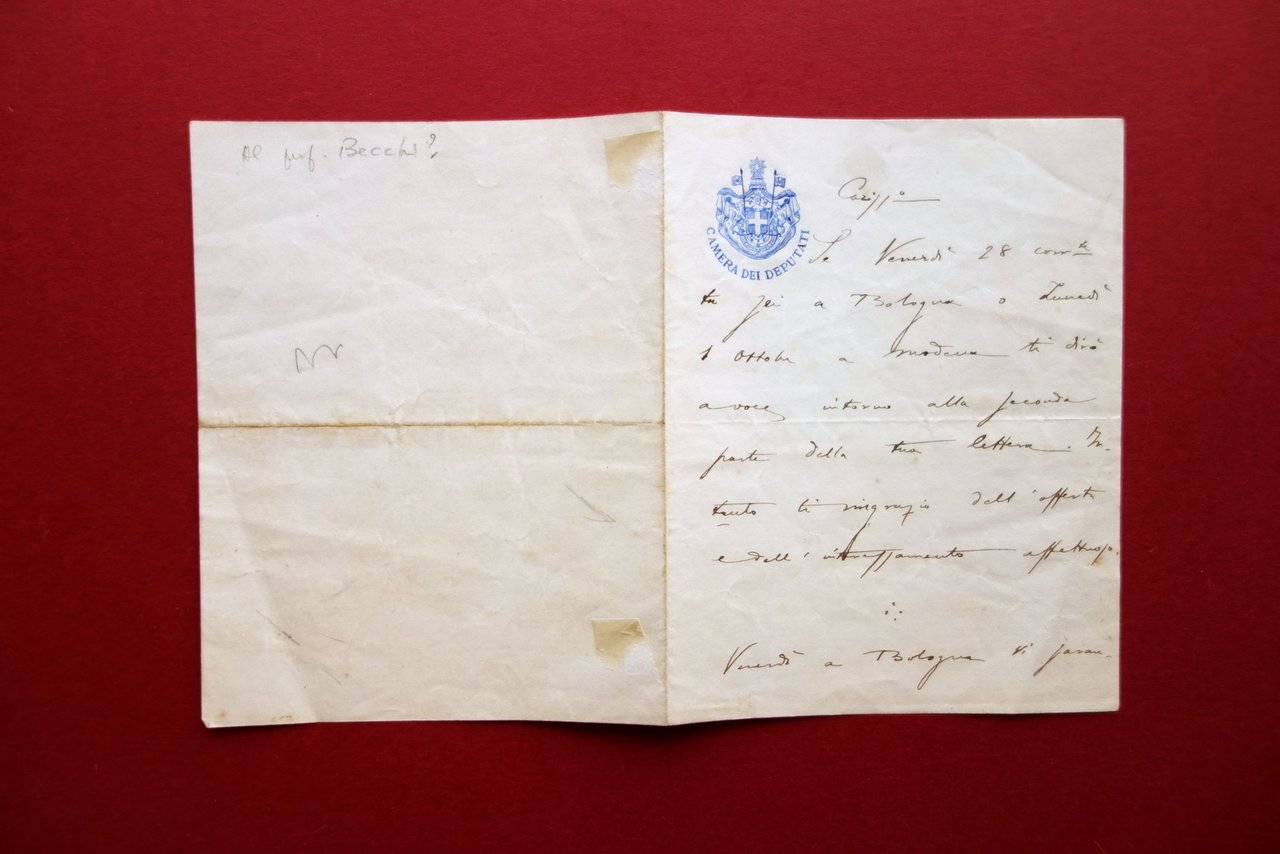 Al prof. Becchi?
CAMERA DEI DEPUTATI
Cariss.o
Se Venerdì 28 corr.te
tu sei a Bologna o Lunedì
1 Ottobre a Modena ti dirò
a voce intorno alla seconda
parte della tua lettera. In-
tanto ti ringrazio dell'offerta
e dell'interessamento affettuoso.
Venerdì a Bologna vi saran-